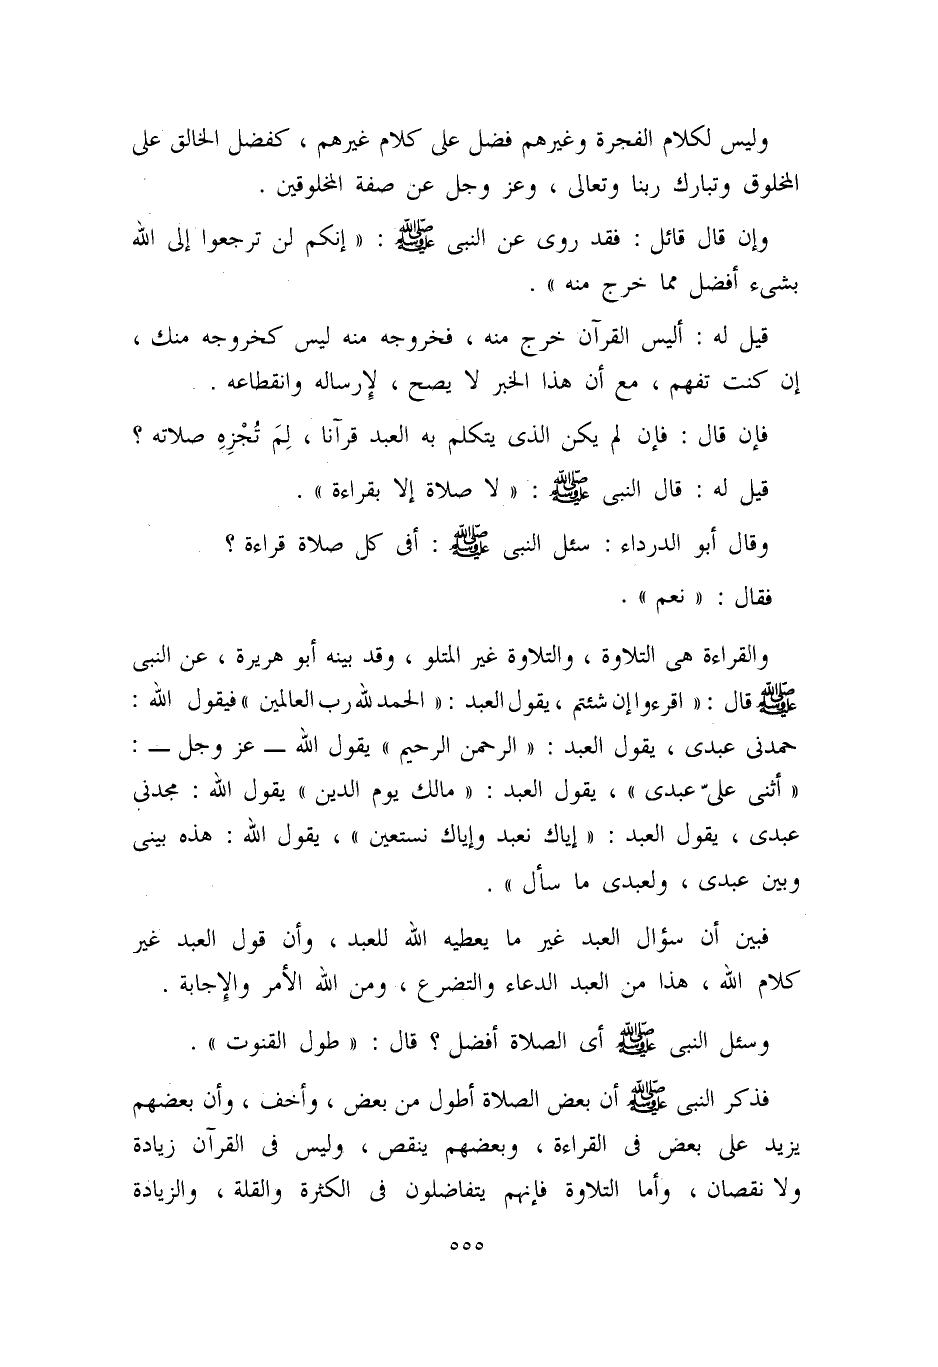 وليس لكلام الفجرة وغيرهم فضل على كلام غيرهم ، كفضل الخالق على
المخلوق وتبارك ربنا وتعالى ، وعز وجل عن صفة المخلوقين .
وإن قال قائل : فقد روى عن النبى ﷺ : « إنكم لن ترجعوا إلى الله
بشىء أفضل مما خرج منه » .
قيل له : أليس القرآن خرج منه ، فخروجه منه ليس كخروجه منك ،
إن كنت تفهم ، مع أن هذا الخبر لا يصح ، لإرساله وانقطاعه .
فإن قال : فإن لم يكن الذى يتكلم به العبد قرآنا ، لِمَ تُجْزِهِ صلاته ؟
قيل له : قال النبى ﷺ : « لا صلاة إلا بقراءة » .
وقال أبو الدرداء : سئل النبى ﷺ : أفى كل صلاة قراءة ؟
فقال : « نعم » .
والقراءة هى التلاوة ، والتلاوة غير المتلو ، وقد بينه أبو هريرة ، عن النبى
ﷺ قال : « اقرءوا إن شئتم ، يقول العبد : « الحمد لله رب العالمين » فيقول الله :
حمدنى عبدى ، يقول العبد : « الرحمن الرحيم » يقول الله — عز وجل — :
« أثنى علىّ عبدى » ، يقول العبد : « مالك يوم الدين » يقول الله : مجدنى
عبدى ، يقول العبد : « إياك نعبد وإياك نستعين » ، يقول الله : هذه بينى
وبين عبدى ، ولعبدى ما سأل » .
فبين أن سؤال العبد غير ما يعطيه الله للعبد ، وأن قول العبد غير
كلام الله ، هذا من العبد الدعاء والتضرع ، ومن الله الأمر والإجابة .
وسئل النبى ﷺ أى الصلاة أفضل ؟ قال : « طول القنوت » .
فذكر النبى ﷺ أن بعض الصلاة أطول من بعض ، وأخف ، وأن بعضهم
يزيد على بعض فى القراءة ، وبعضهم ينقص ، وليس فى القرآن زيادة
ولا نقصان ، وأما التلاوة فإنهم يتفاضلون فى الكثرة والقلة ، والزيادة
٥٥٥